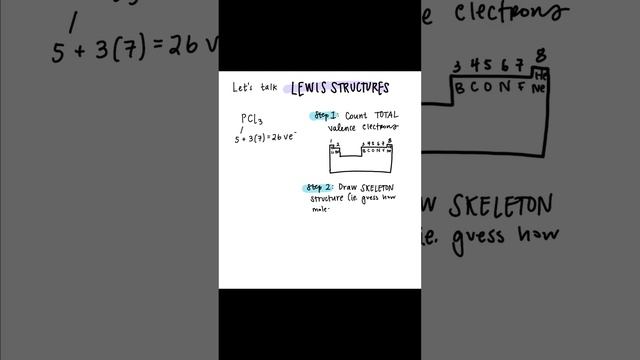 Let's talk LEWIS STRUCTURES
PCl3
5 + 3(7) = 26 ve-
Step 1: Count TOTAL
valence electrons
1 2 3 4 5 6 7 8
B C O N F Ne
Step 2: Draw SKELETON
structure (i.e. guess how
mole-
5 + 3(7) = 26 ve
valence electrons
3 4 5 6 7 8
He
B C O N F Ne
SKELETON
i.e. guess how